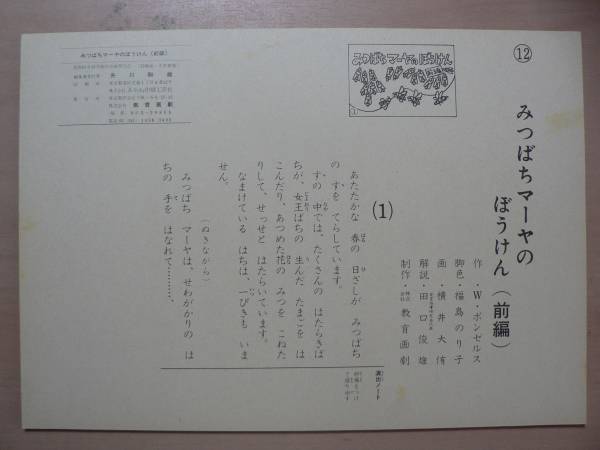 ⑫
みつばちマーヤの
ぼうけん（前編）
作・W・ボンゼルス
脚色・福島のり子
画・横井大侑
解説・田口俊雄
制作・株式会社教育画劇
みつばちマーヤのぼうけん
(1)
あたたかな　春の　日ざしが　みつばち
の　すを　てらしています。
すの　中では、たくさんの　はたらきば
ちが、女王ばちの　生んだ　たまごを　は
こんだり、あつめた　花の　みつを　こねた
りして、せっせと　はたらいています。
なまけている　はちは、一ぴきも　いま
せん。
（ぬきながら）
みつばち　マーヤは、せわがかりの　は
ちの　手を　はなれて………、
演出ノート
みつばちマーヤのぼうけん（前編）
株式会社 教育画劇